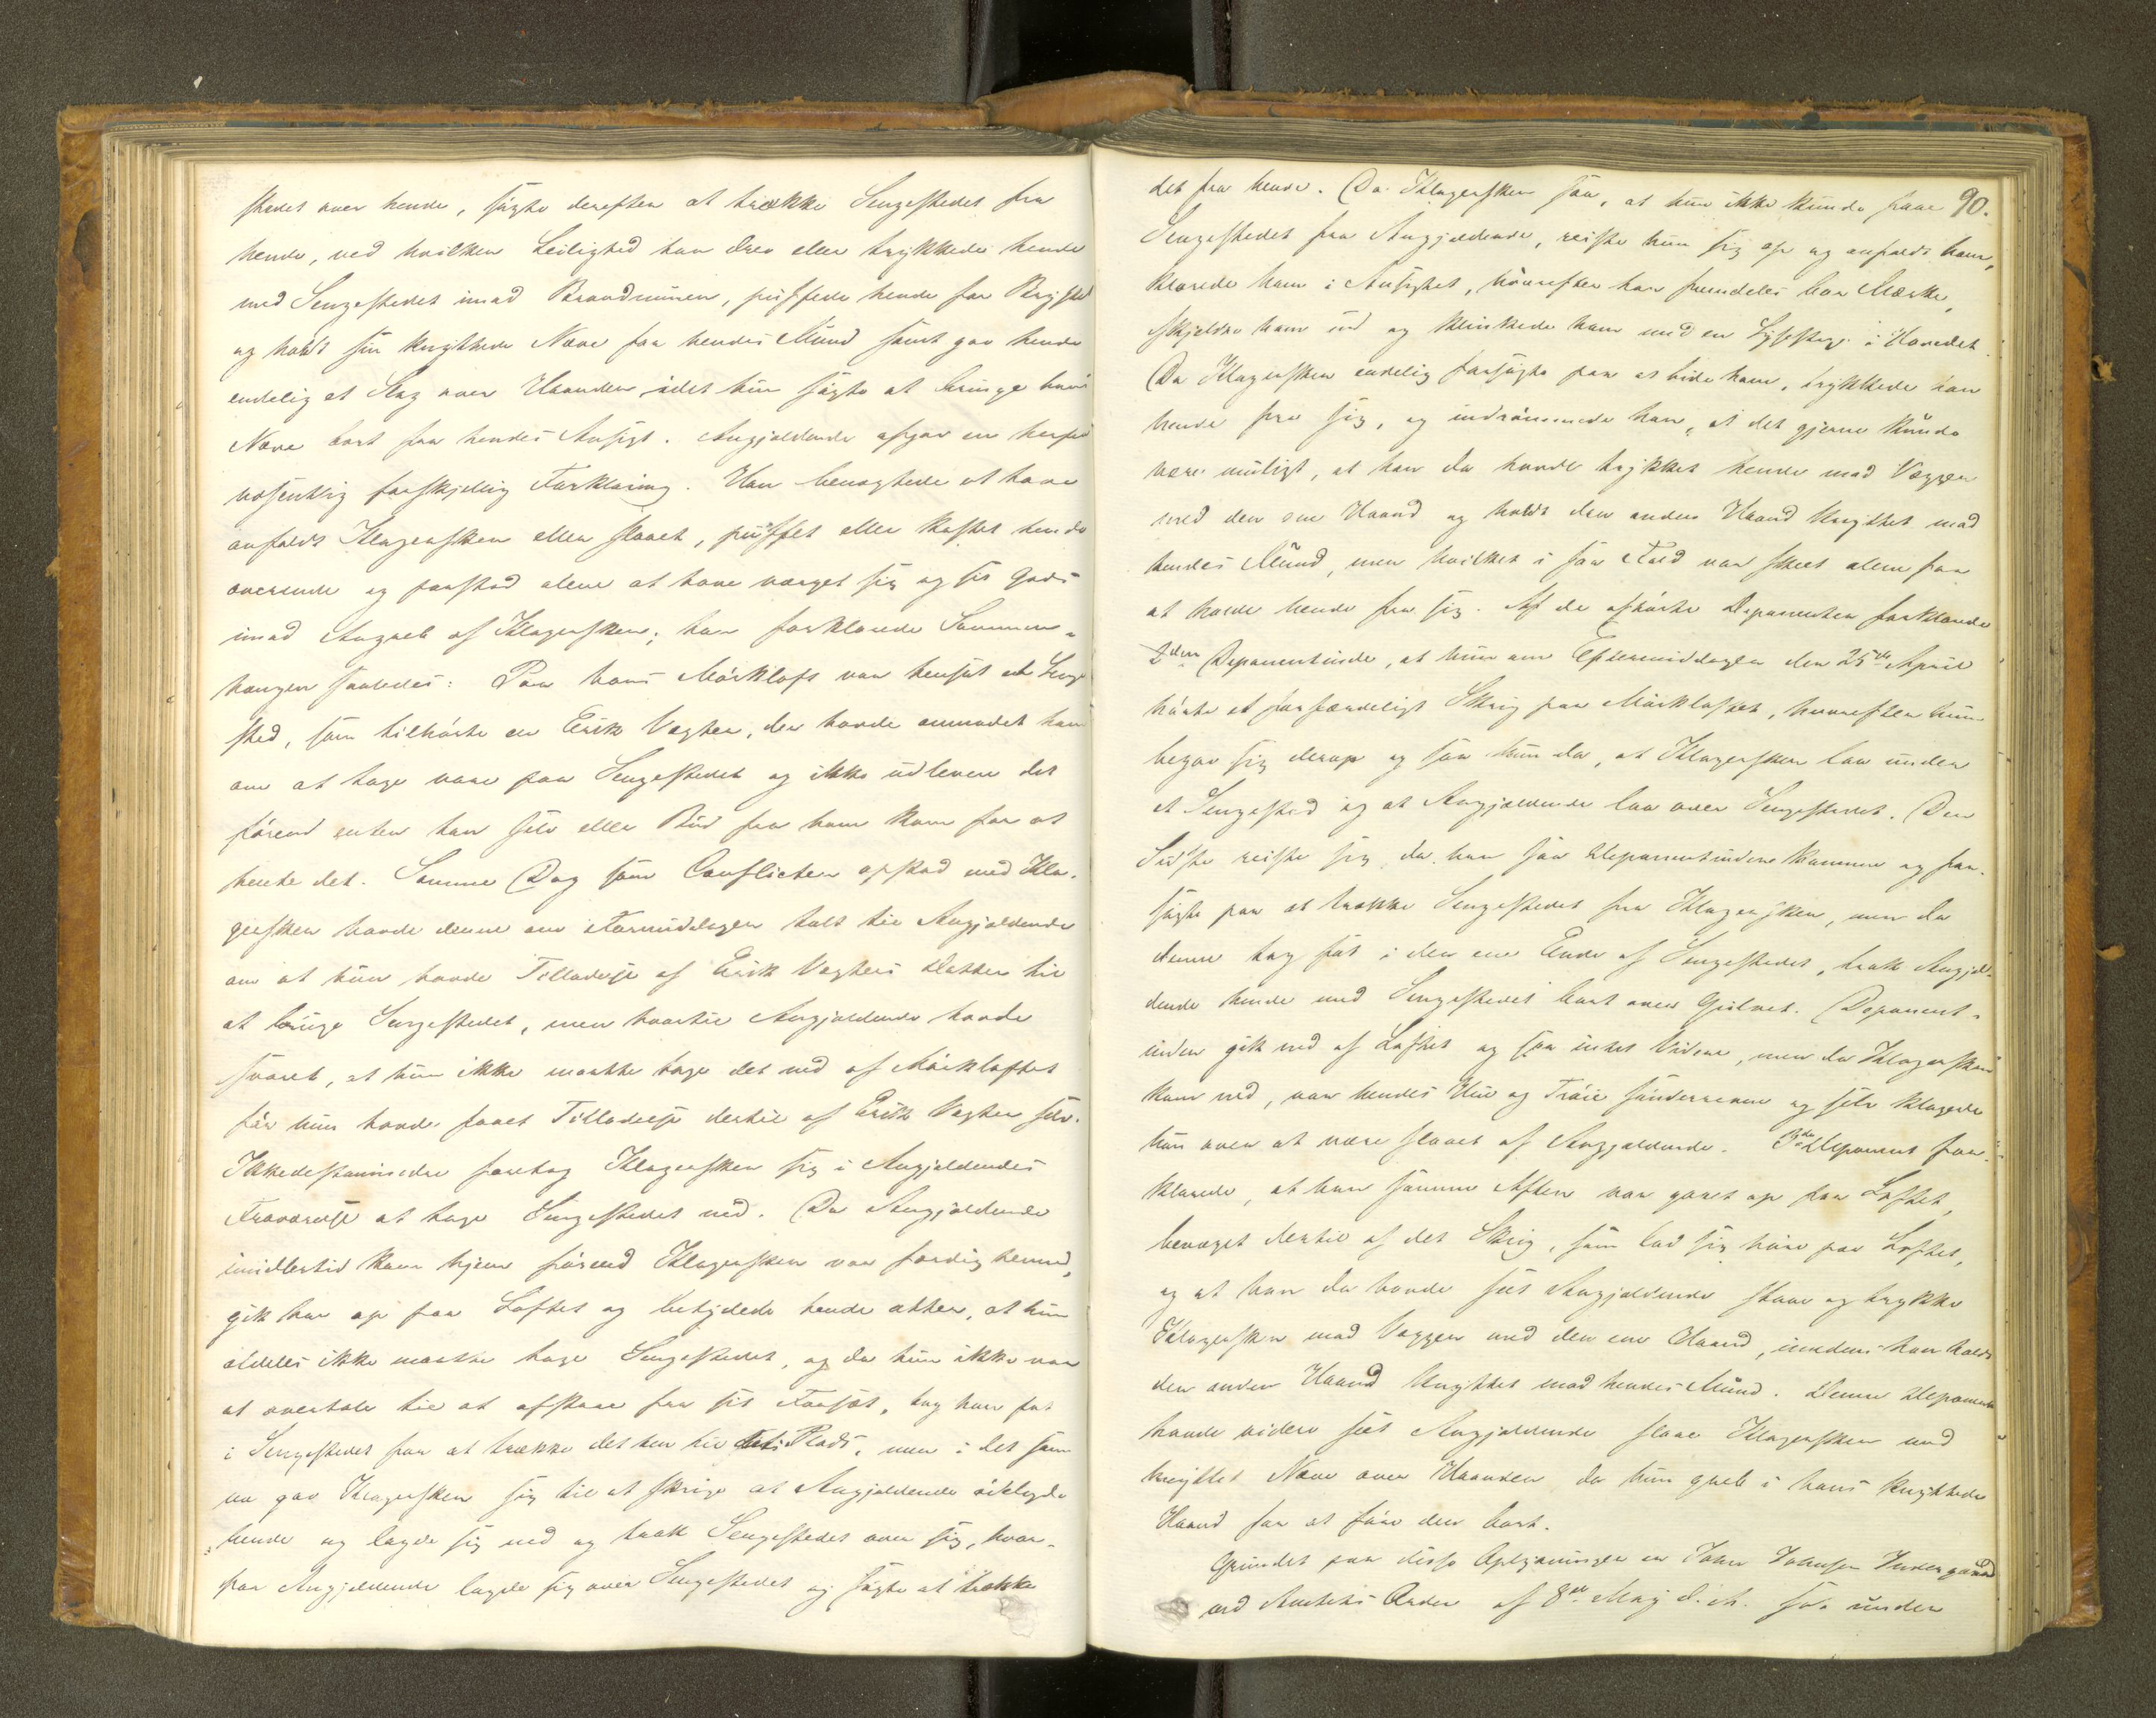 stedet over hende, søgte derefter at trække Sengestedet fra
hende, ved hvilken Leilighed han drev eller trykkede hende
med Sengestedet imod Brandmuren, puffede hende for Brystet
og holdt sin knyttede Næve for hendes Mund samt gav hende
endelig et Slag over Haanden, idet hun søgte at bringe hans
Næve bort fra hendes Ansigt. Angjældende afgav en herfra
væsentlig forskjellig Forklaring. Han benegtede at have
anfaldt Klagersken eller slaaet, puffet eller kastet hende
overende og paastod alene at have værget sig og sit Gods
imod Angreb af Klagersken; han forklarede Sammen-
hængen saaledes: Paa hans Mørkloft var hensat et Senge
sted, som tilhørte en Erik Vegter, der havde anmodet ham
om at tage vare paa Sengestedet og ikke udlevere det
førend enten han selv eller Bud fra ham kom for at
hente det. Samme Dag som Conflicten opstod med Kla-
gersken havde denne om Formiddagen talt til Angjældende
om at hun havde Tilladelse af Erik Vegters Datter til
at bruge Sengestedet, men hvortil Angjældende havde
svaret, at hun ikke maatte tage det ned af Mørkloftet
før hun havde faaet Tilladelse dertil af Erik Vegter selv.
Ikkedestomindre foretog Klagersken sig i Angjældendes
Fraværelse at tage Sengestedet ned. Da Angjældende
imidlertid kom hjem førend Klagersken var færdig hermed,
gik han op paa Loftet og betydede hende atter, at hun
aldeles ikke maatte tage Sengestedet, og da hun ikke var
at overtale til at afstaae fra sit Forsæt, tog han fat
i Sengestedet for at trække det hen til sin Plads, men i det samme
gav Klagersken sig til at skrige at Angjældende ødelagde
hende og lagde sig ned og trak Sengestedet over sig, hvor-
paa Angjældende lagde sig over Sengestedet og søgte at trække
90.
det fra hende. Da Klagersken saa, at hun ikke kunde faae
Sengestedet fra Angjældende, reiste hun sig op og anfaldt ham,
klorede ham i Ansigtet, hvorefter han fremdeles bar Mærke,
skjeldte ham ud og klinkede ham med en Lysestage i Hovedet.
Da Klagersken endelig forsøgte paa at bide ham, trykkede han
hende fra sig, og indrømmede han, at det gjerne kunde
være muligt, at han da havde trykket hende mod Væggen
med den ene Haand og holdt den anden Haand knyttet mod
hendes Mund, men hvilket i saa Fald var skeet alene for
at holde hende fra sig. Af de afhørte Deponenter forklarede
2den Deponentinde, at hun om Eftermiddagen den 25de April
hørte et forfærdeligt Skrig paa Mørkloftet, hvorefter hun
begav sig derop og saa hun da, at Klagersken laa under
et Sengested og at Angjældende laa over Sengestedet. Den
Sidste reiste sig da han saa Deponentinden komme og for-
søgte paa at trække Sengestedet fra Klagersken, men da
denne tog fat i den ene Ende af Sengestedet, trak Angjæl-
dende hende med Sengestedet bort over Gulvet. Deponent-
inden gik ned af Loftet og saa intet Videre, men da Klagersken
kom ned, var hendes Hue og Trøie sønderrevne og selv klagede
hun over at være slaaet af Angjældende. 3die Deponent for-
klarede, at han samme Aften var gaaet op paa Loftet,
bevæget dertil af det Skrig, som lod sig høre paa Loftet,
og at han da havde seet Angjældende staae og trykke
Klagersken mod Væggen med den ene Haand, imedens han holdt
den anden Haand knyttet mod hendes Mund. Denne Deponent
havde videre seet Angjældende slaae Klagersken med
knyttet Næve over Haanden da hun greb i hans knyttede
Haand for at faae den bort.
Grundet paa disse Oplysninger er Johan Johansen
ved Amtets Order af 8de Maj d. A. sat under